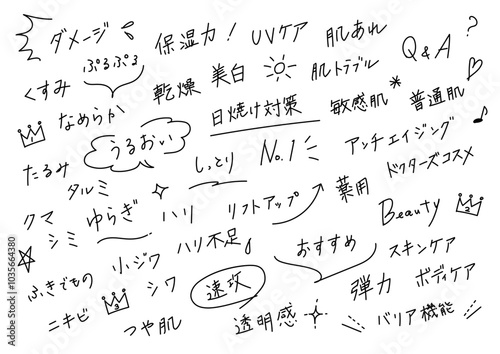 ダメージ
保湿力!
UVケア
肌あれ
?
Q&A
ぷるぷる
くすみ
乾燥
美白
肌トラブル
なめらか
日焼け対策
敏感肌
普通肌
うるおい
しっとり
No.1
アンチエイジング
たるみ
タルミ
ドクターズコスメ
クマ
ゆらぎ
ハリ
リフトアップ
薬用
Beauty
シミ
ハリ不足
おすすめ
スキンケア
小ジワ
ふきでもの
シワ
速攻
弾力
ボディケア
ニキビ
つや肌
透明感
バリア機能
Adobe Stock | #1035664380